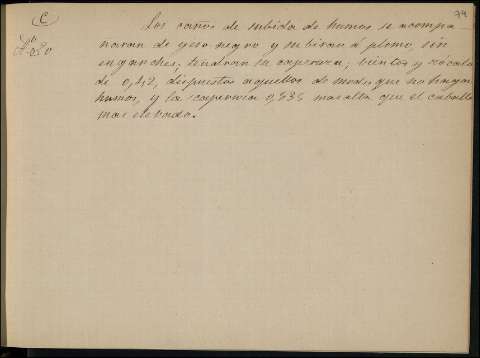 C 74
Los caños de subida de humos se acompa
ñaran de yeso negro y subiran á plomo, sin
engarches; tendran su caperuza; vientos y
de 0,42, dispuestos aquellos de modo que no hagan
humos, y la caperuza 0,835 mas alta que el caballe
mas elevado.